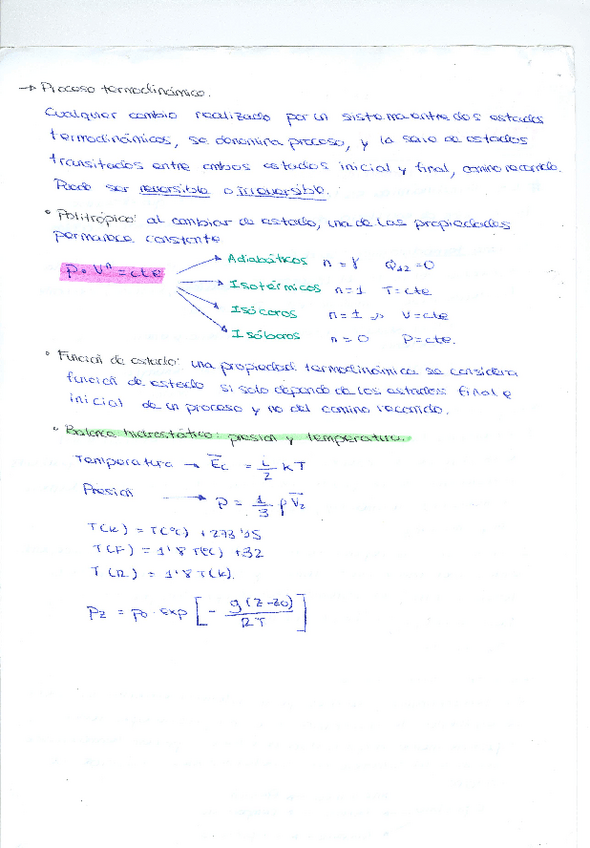 → Proceso termodinámico.
Cualquier cambio realizado por un sistema entre dos estados
termodinámicos, se denomina proceso, y la serie de estados
transitados entre ambos estados inicial y final, camino recorrido.
Puede ser reversible o irreversible.
° Politrópico: al cambiar de estado, una de las propiedades
permanece constante
P · Vⁿ = cte
Adiabáticos n = γ Q₁₂ = 0
Isotérmicos n = 1 T = cte
Isócoros n = ± ∞ V = cte
Isóbaros n = 0 P = cte.
° Función de estado: una propiedad termodinámica se considera
función de estado si solo depende de los estados final e
inicial de un proceso y no del camino recorrido.
° Balance hidrostático: presión y temperatura.
Temperatura → Ec = i/2 kT
Presión → P = 1/3 ρ V₂
T(K) = T(ºC) + 273'15
T(F) = 1'8 T(ºC) + 32
T(R) = 1'8 T(K).
Pz = p0 · exp [ - g(z-z0) / RT ]